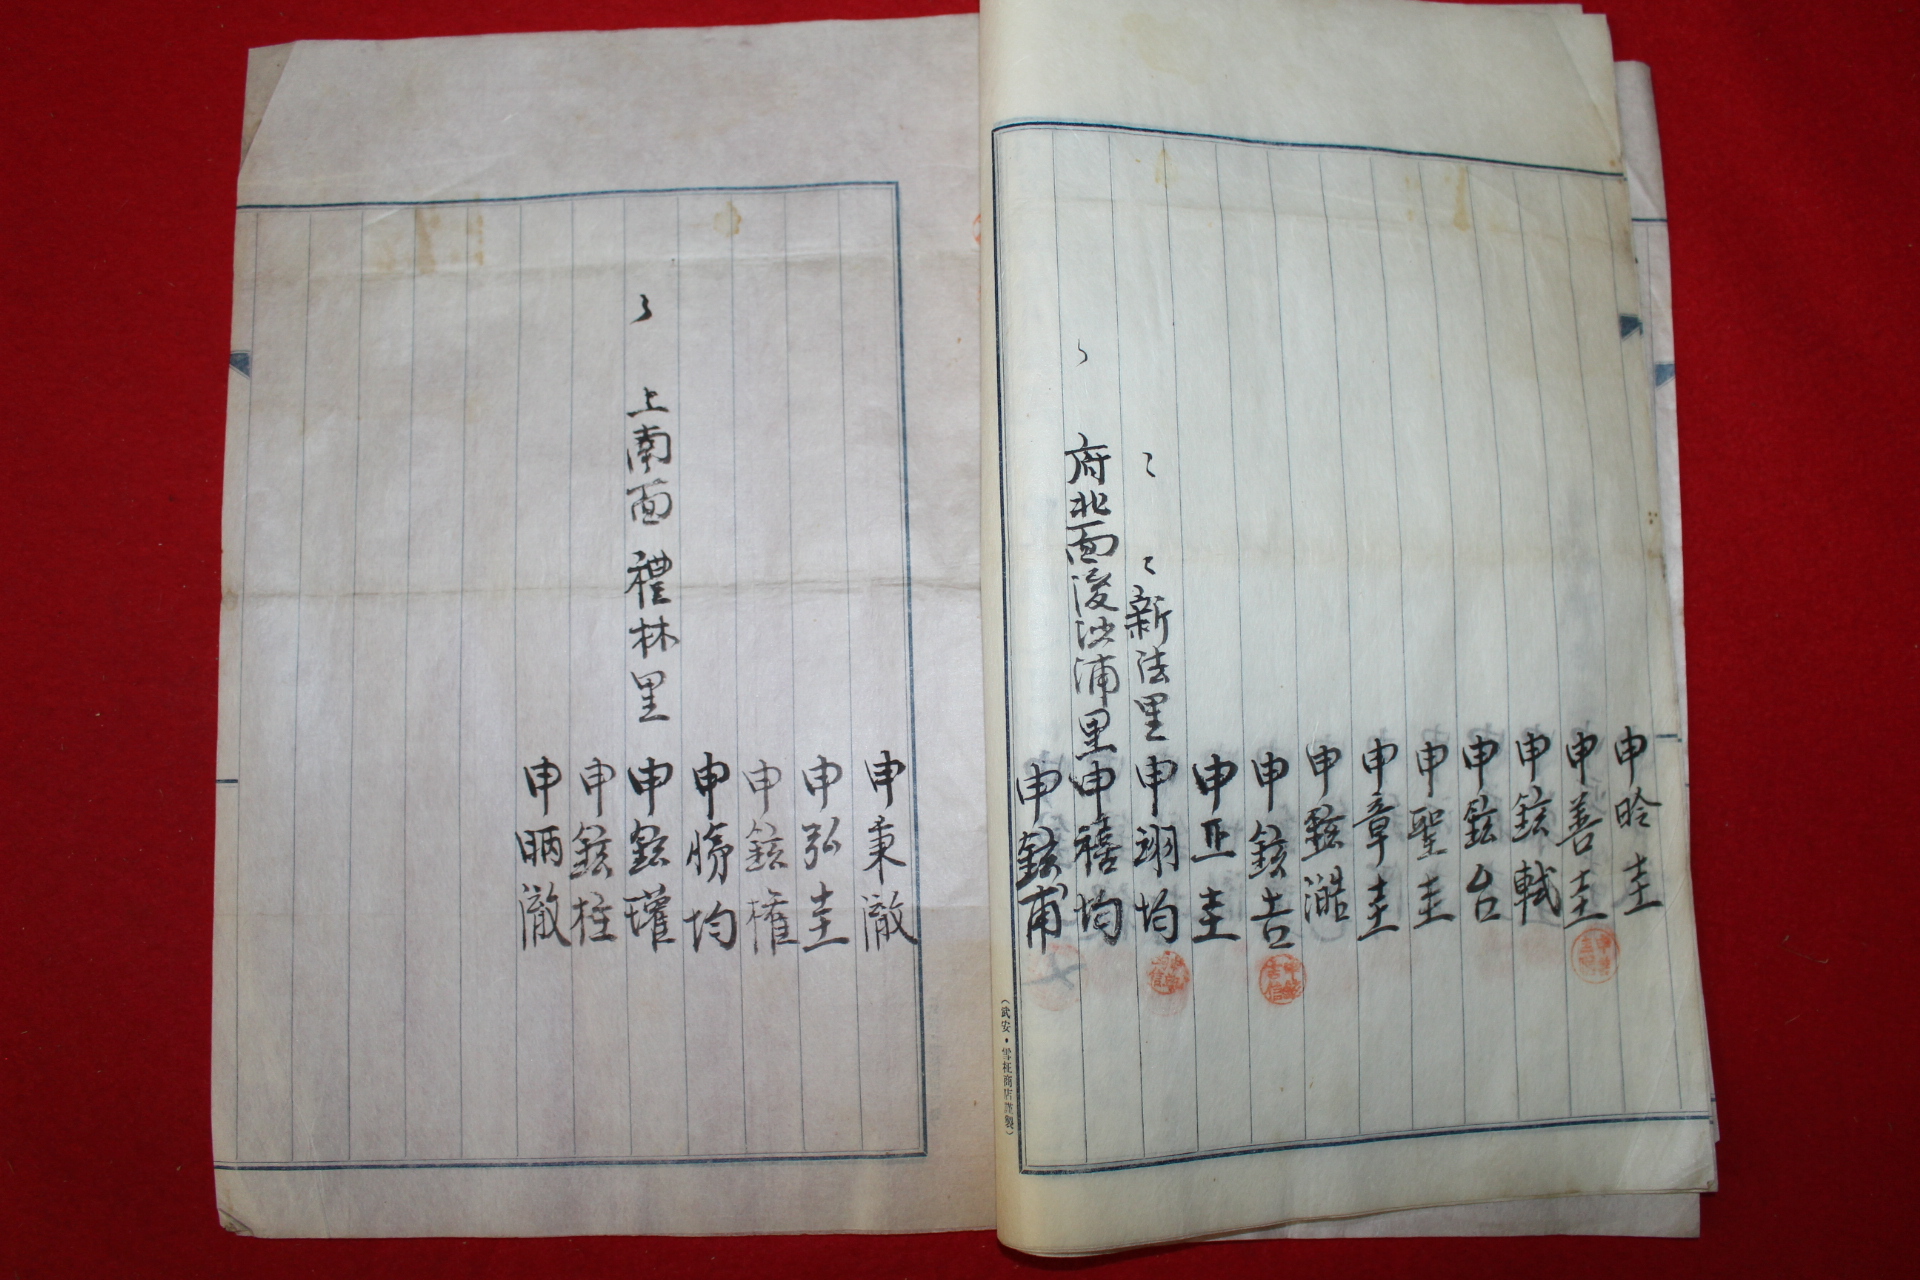 申昤圭
申善圭
申鉉軾
申鉉台
申聖圭
申章圭
申鉉澔
申鉉吉
申正圭
〻 〻新法里 申翊均
〻 府北面後沙浦里 申禧均
申鉉甫
(武安・雪枉商店謹製)
申秉澈
申弘圭
申鉉權
申勝均
〻 上南面 禮林里 申鉉瓘
申鉉柱
申昞澈